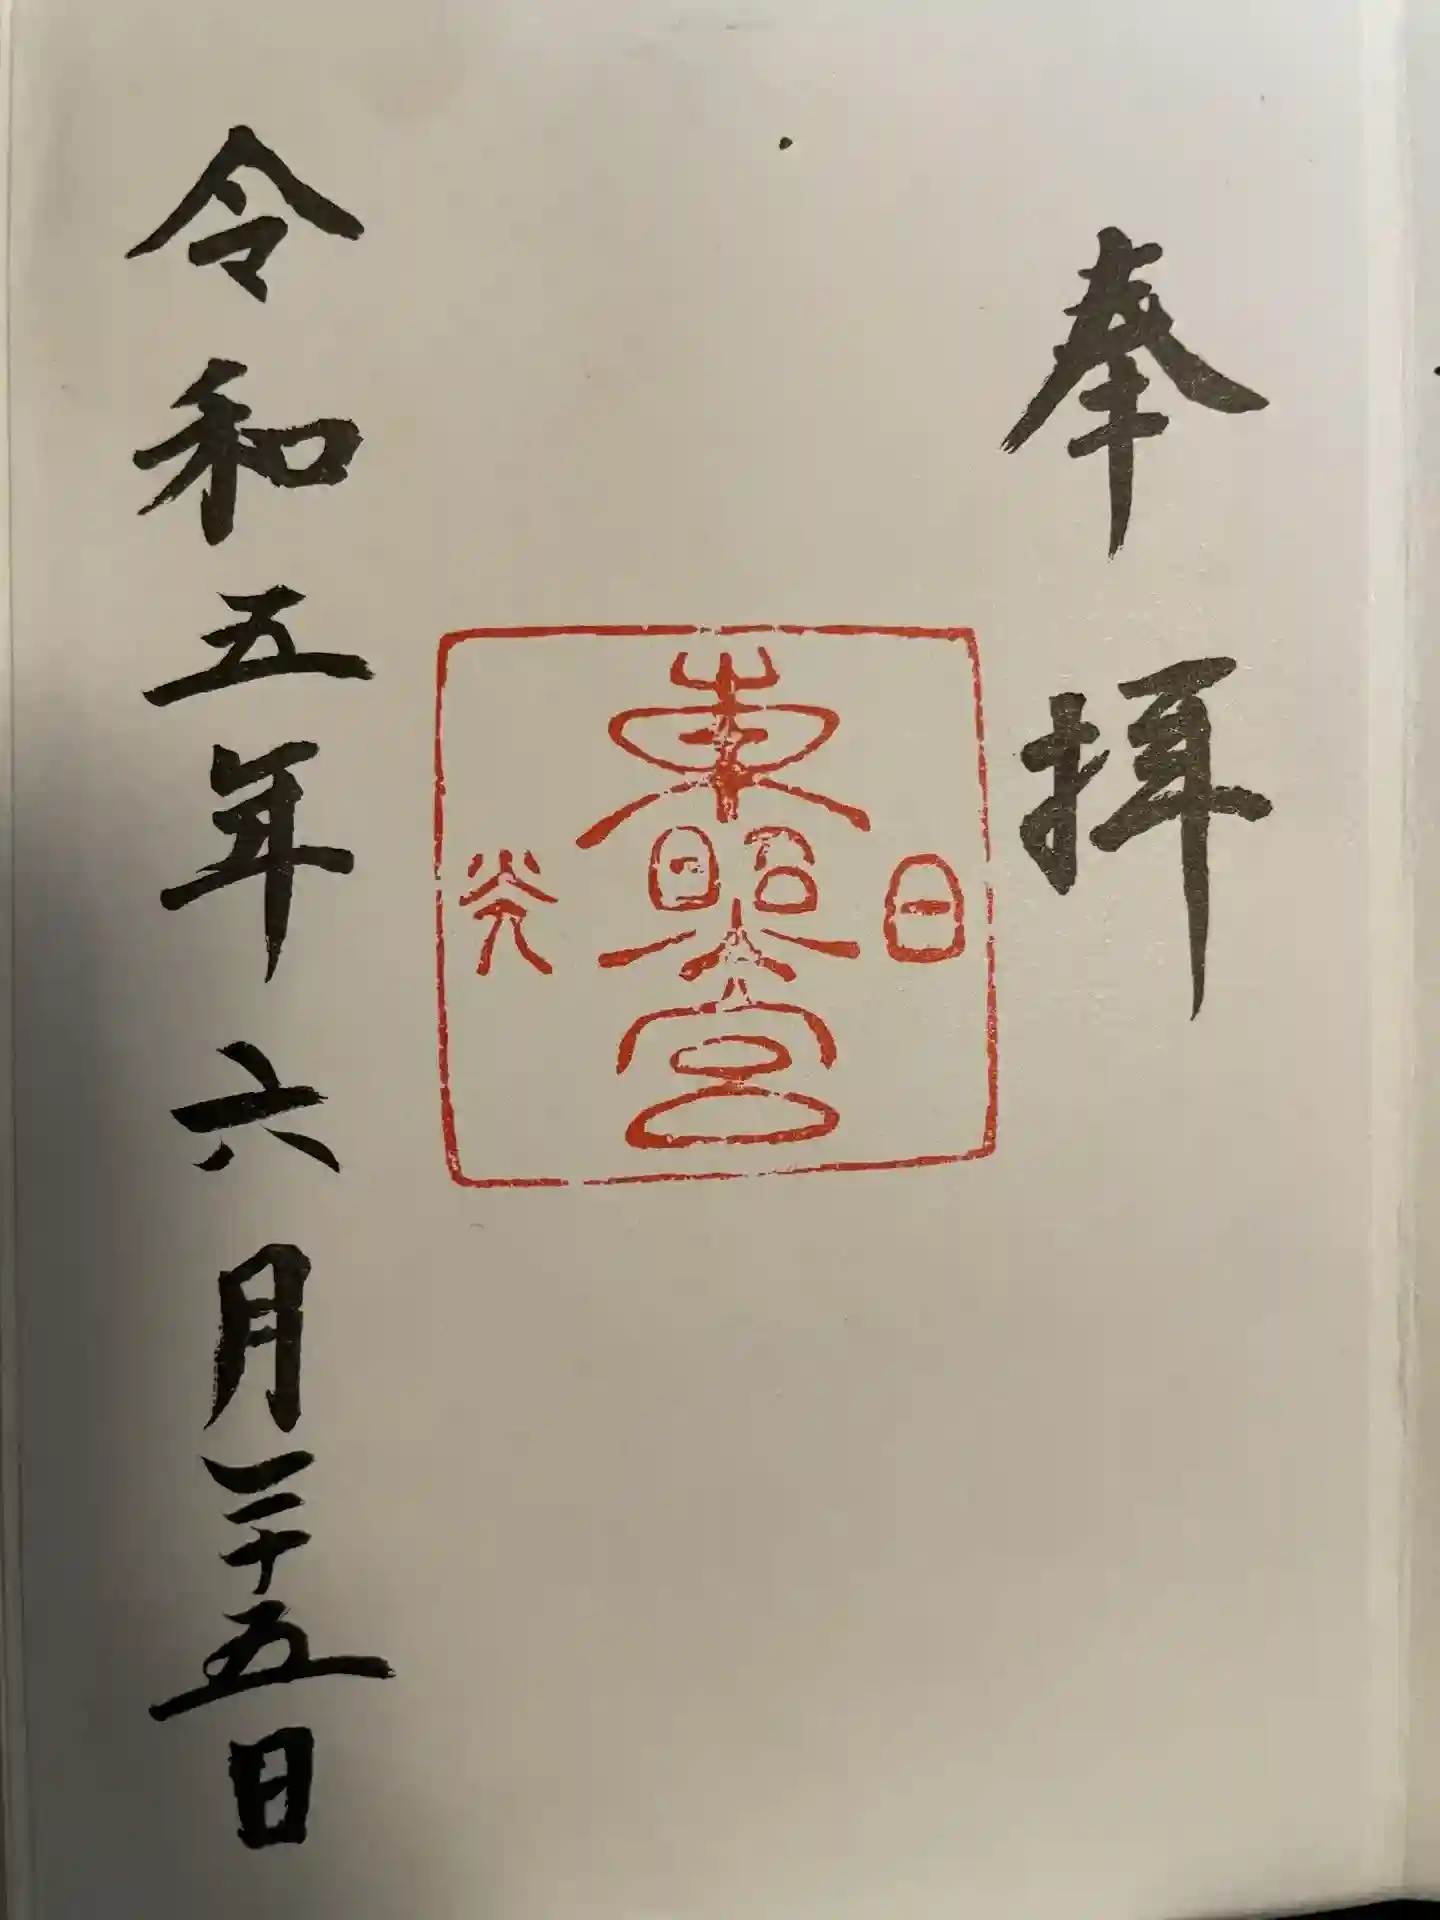 奉拝
日
東照宮
光
令和五年六月二十五日